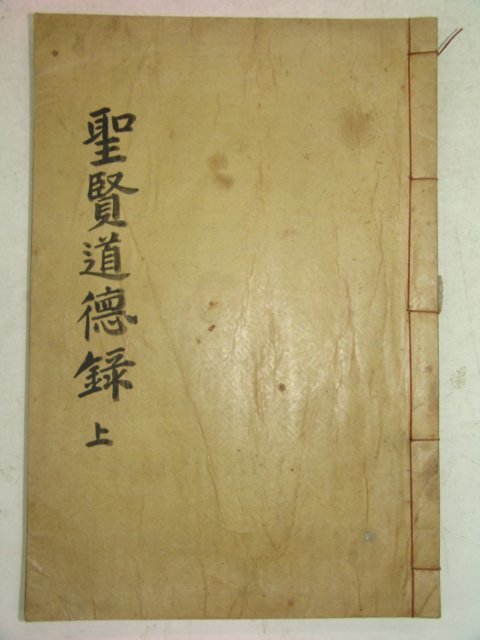 聖賢道德錄
上